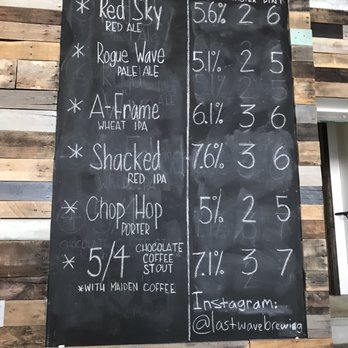 * Red Sky 5.6% 2 6
RED ALE
* Rogue Wave 5.1% 2 5
PALE ALE
* A-Frame 6.1% 3 6
WHEAT IPA
* Shacked 7.6% 3 6
RED IPA
* Chop Hop 5% 2 5
PORTER
* 5/4 CHOCOLATE COFFEE STOUT 7.1% 3 7
*WITH MAIDEN COFFEE
Instagram:
@lastwavebrewing